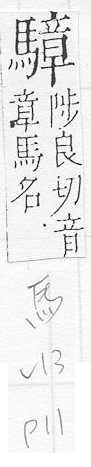 騿
陟良切音
章馬名
馬
V13
P11